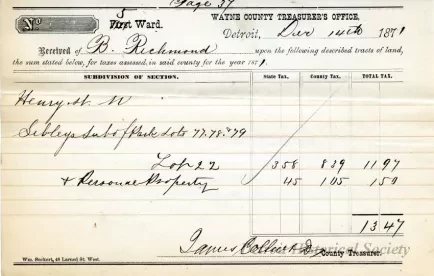 Page 37
No
5 First Ward.
WAYNE COUNTY TREASURER'S OFFICE,
Detroit, Dec 14th 1871
Received of B. Richmond upon the following described tracts of land,
the sum stated below, for taxes assessed, in said county for the year 1871.
SUBDIVISION OF SECTION. State Tax. County Tax. TOTAL TAX.
Henry St. N
Sibleys Sub of Park Lots 77.78.&79
Lot 22 358 839 1197
& Personal Property 45 105 150
1347
James Collier County Treasurer.
Wm. Stockert, 40 Larned St. West.
Historical Society